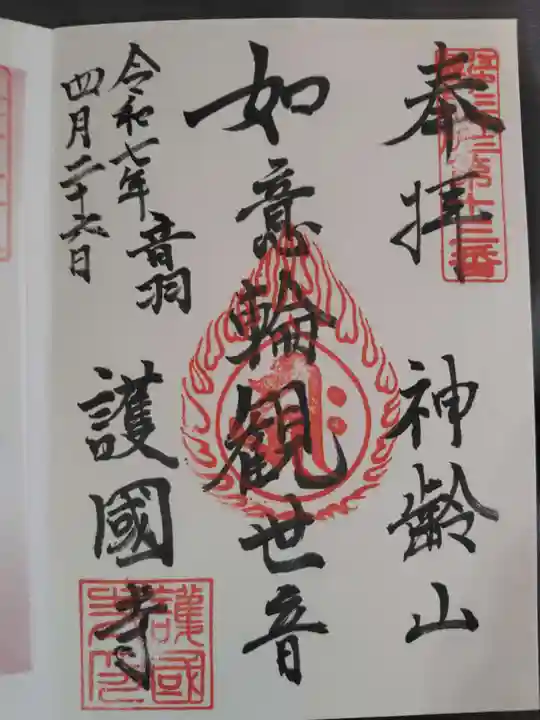 奉拝
神齢山
如意輪観世音
令和七年
四月二十六日
音羽
護國寺
第十三番
護國